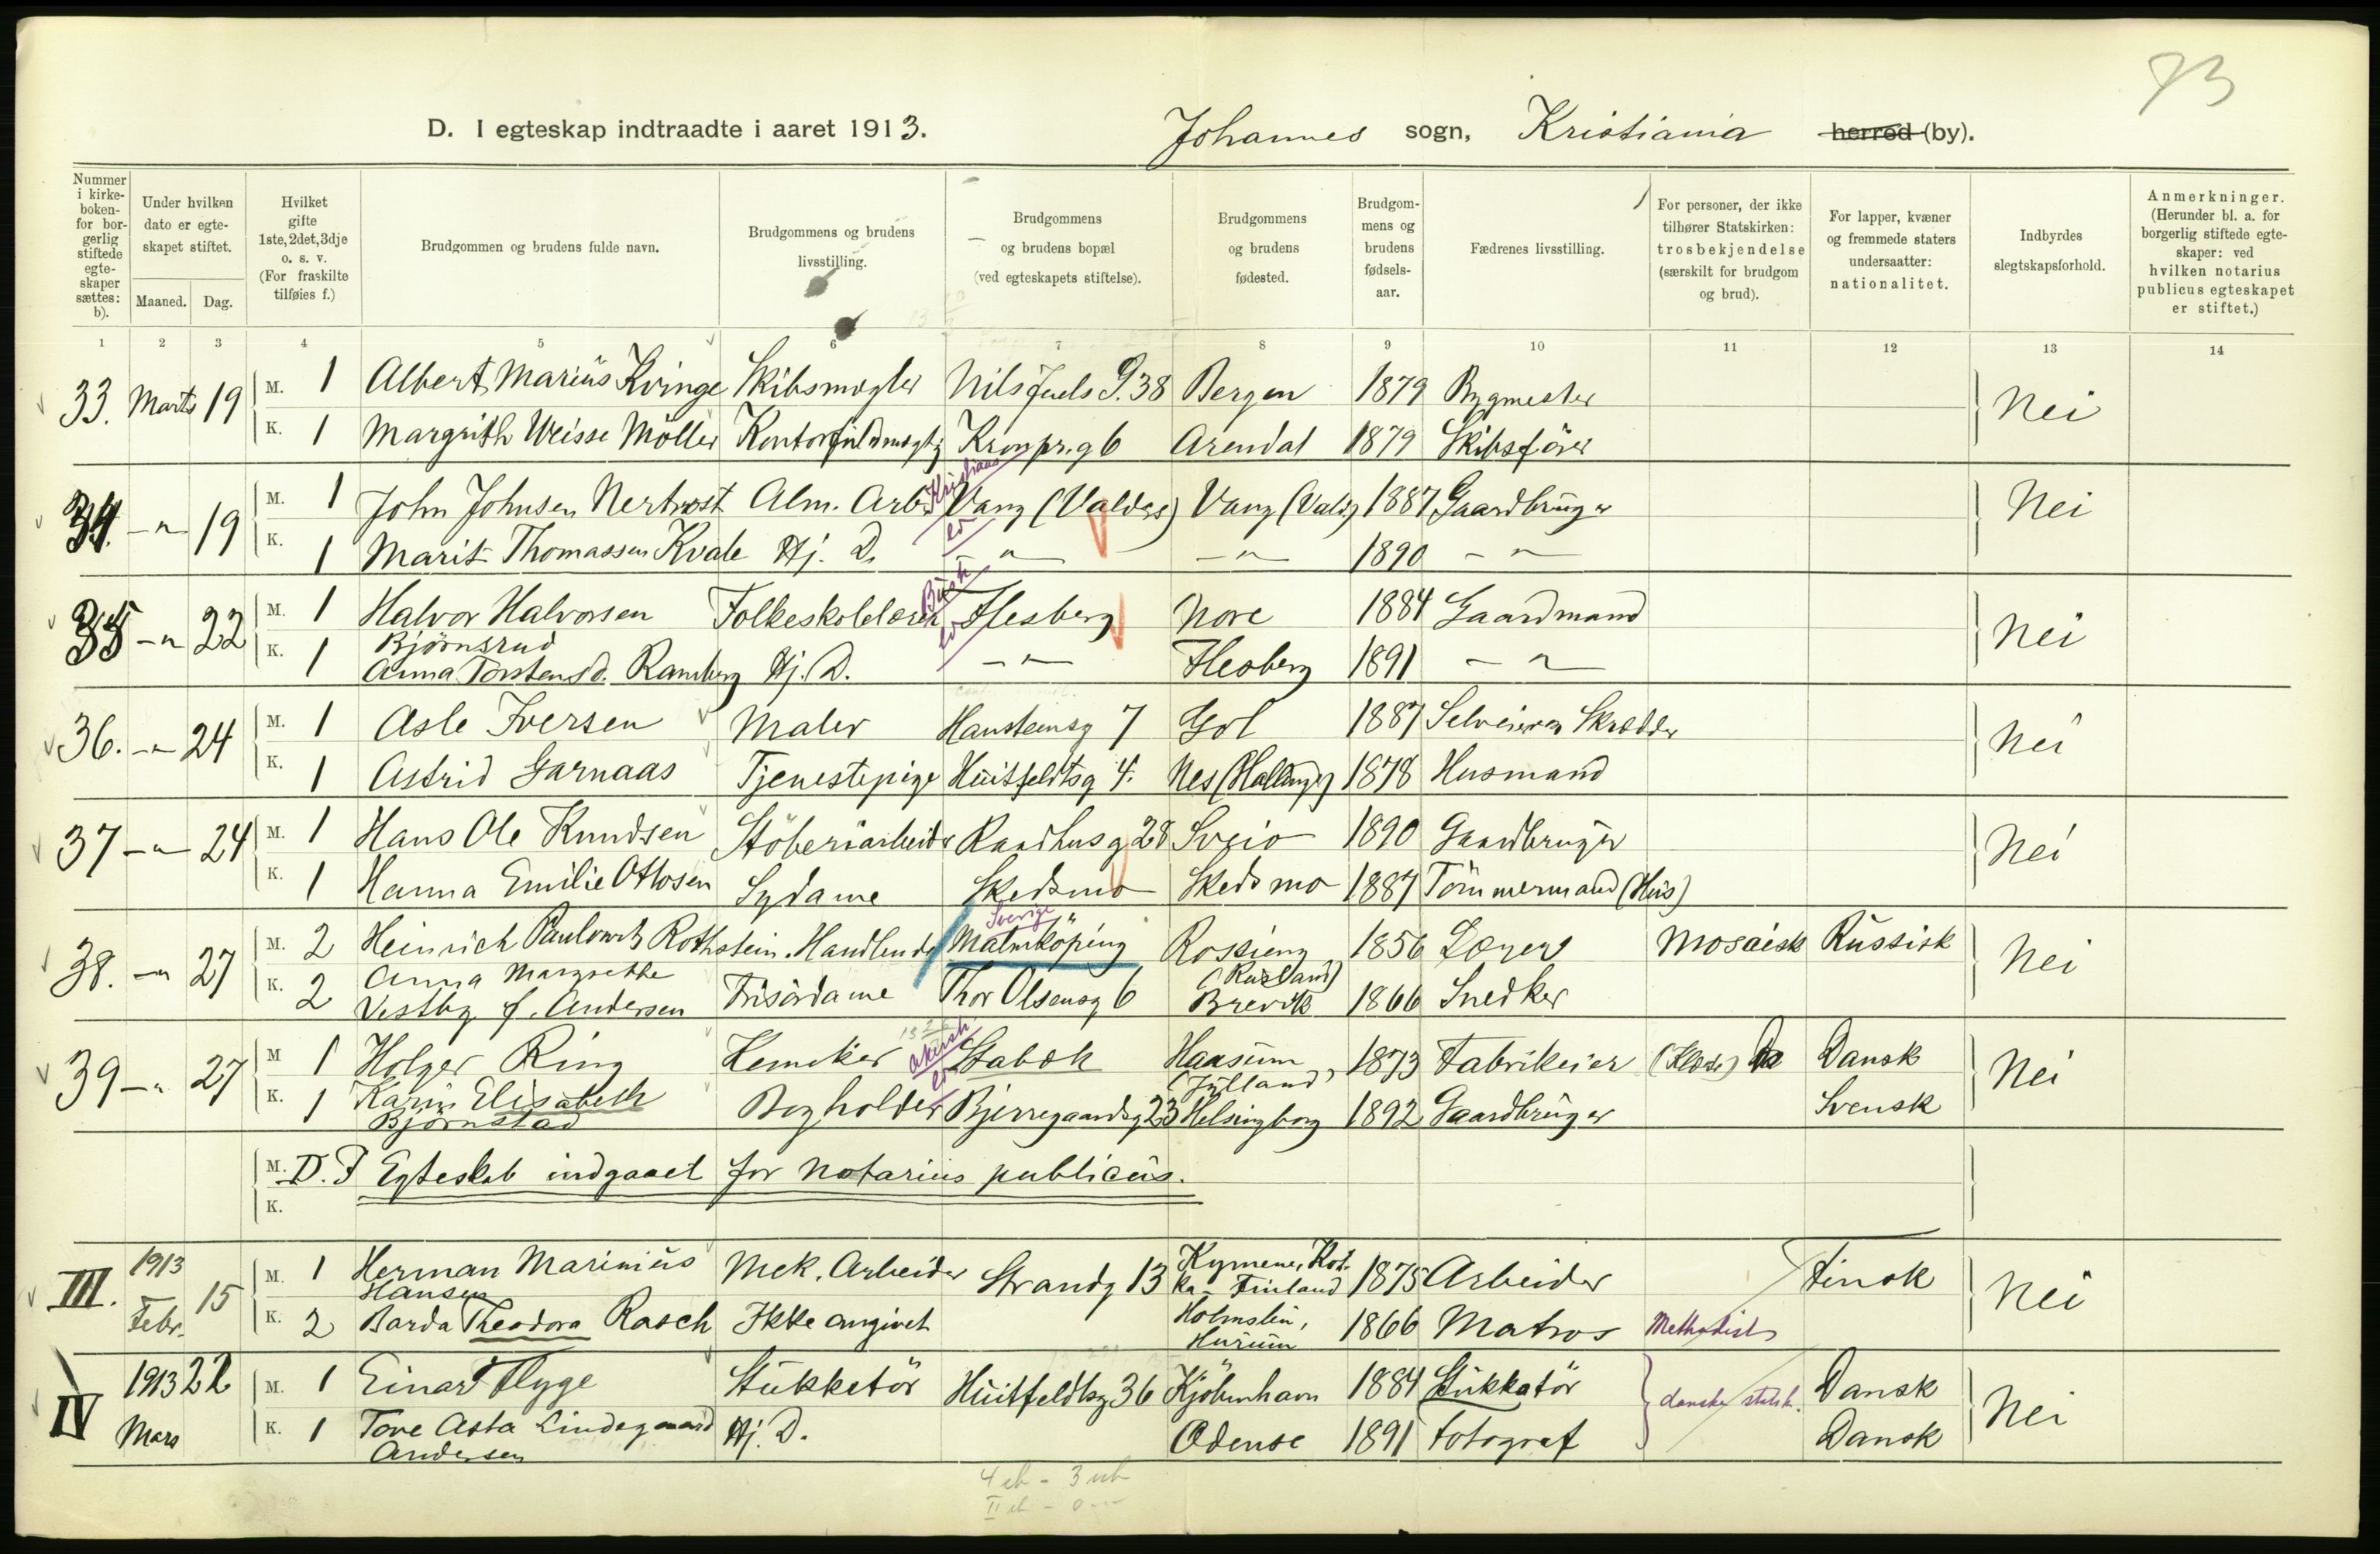 73
D. I egteskap indtraadte i aaret 1913. Johannes sogn, Kristiania herred (by).
Nummer i kirkeboken for borgerlig stiftede egteskaper sættes: b).
Under hvilken dato er egteskapet stiftet.
Maaned. Dag.
Hvilket gifte 1ste, 2det, 3dje o. s. v. (For fraskilte tilføies f.)
Brudgommen og brudens fulde navn.
Brudgommens og brudens livsstilling.
Brudgommens og brudens bopæl (ved egteskapets stiftelse).
Brudgommens og brudens fødested.
Brudgommens og brudens fødselsaar.
Fædrenes livsstilling.
For personer, der ikke tilhører Statskirken: trosbekjendelse (særskilt for brudgom og brud).
For lapper, kvæner og fremmede staters undersaatter: nationalitet.
Indbyrdes slegtskapsforhold.
Anmerkninger. (Herunder bl. a. for borgerlig stiftede egteskaper: ved hvilken notarius publicus egteskapet er stiftet.)
1 2 3 4 5 6 7 8 9 10 11 12 13 14
33. Marts 19 M. 1 Albert Marius Kvinge Skibsmægler Nils Juels G. 38 Bergen 1879 Bygmester Nei
K. 1 Margrith Weisse Möller Kontorfuldmægtg Kronpr.g 6 Arendal 1879 Skibsförer
34. -"- 19 M. 1 John Johnsen Nertrost Alm. Arb. Kristians Vang (Valders) Vang (Vald) 1887 Gaardbruger Nei
K. 1 Marit Thomassen Kvale Hj. D. -"- -"- 1890 -"-
35 -"- 22 M. 1 Halvor Halvorsen Folkeskolelærer Busk Flesberg Nore 1884 Gaardmand Nei
Björnsrud
K. 1 Anna Torstensd. Ramberg Hj. D. -"- Flesberg 1891 -"-
36. -"- 24 M. 1 Asle Iversen Maler Hansteensg 7 Gol 1887 Selveier og Skrædder Nei
K. 1 Astrid Garnaas Tjenestepige Huitfeldtsg 4. Nes (Hallingd) 1878 Husmand
37 -"- 24 M. 1 Hans Ole Knudsen Stöberiarbeider Raadhusg 28 Sveio 1890 Gaardbruger Nei
K. 1 Hanna Emilie Ottosen Sydame Skedsmo Skedsmo 1887 Tömmermand (Hus)
38. -"- 27 M. 2 Heinrich Paulowitz Rothstein. Handlende Sverige Malmköping Rossieng 1856 Læger Mosaisk Russisk Nei
(Rusland)
K. 2 Anna Margrethe
Vestby f. Andersen Frisördame Thor Olsensg 6 Brevik 1866 Snedker
39 -"- 27 M 1 Holger Ring Kemiker Akersh Stabæk Haasum 1873 Fabrikeier (Klæde) Dansk Nei
(Jylland)
K. 1 Karin Elisabeth
Björnstad Bogholder Bjerregaardsg 23 Helsingborg 1892 Gaardbruger Svensk
M. D. F Egteskab indgaaet for Notarius publicus.
K.
III. 1913 Febr. 15 M. 1 Herman Marinius
Hansen Mek. Arbeider Strandg 13 Kymene, Kot-
ka - Finland 1875 Arbeider Finsk Nei
K. 2 Barda Theodora Rasch Ikke angivet Holmslin,
Hurum 1866 Matros Methodist
IV 1913 Mars 22 M. 1 Einar Flyge Stukkatör Huitfeldtsg 36 Kjöbenhavn 1884 Stukkatör danske statsk. Dansk Nei
K. 1 Tove Asta Lindegaard
Andersen Hj. D. Odense 1891 Fotograf Dansk